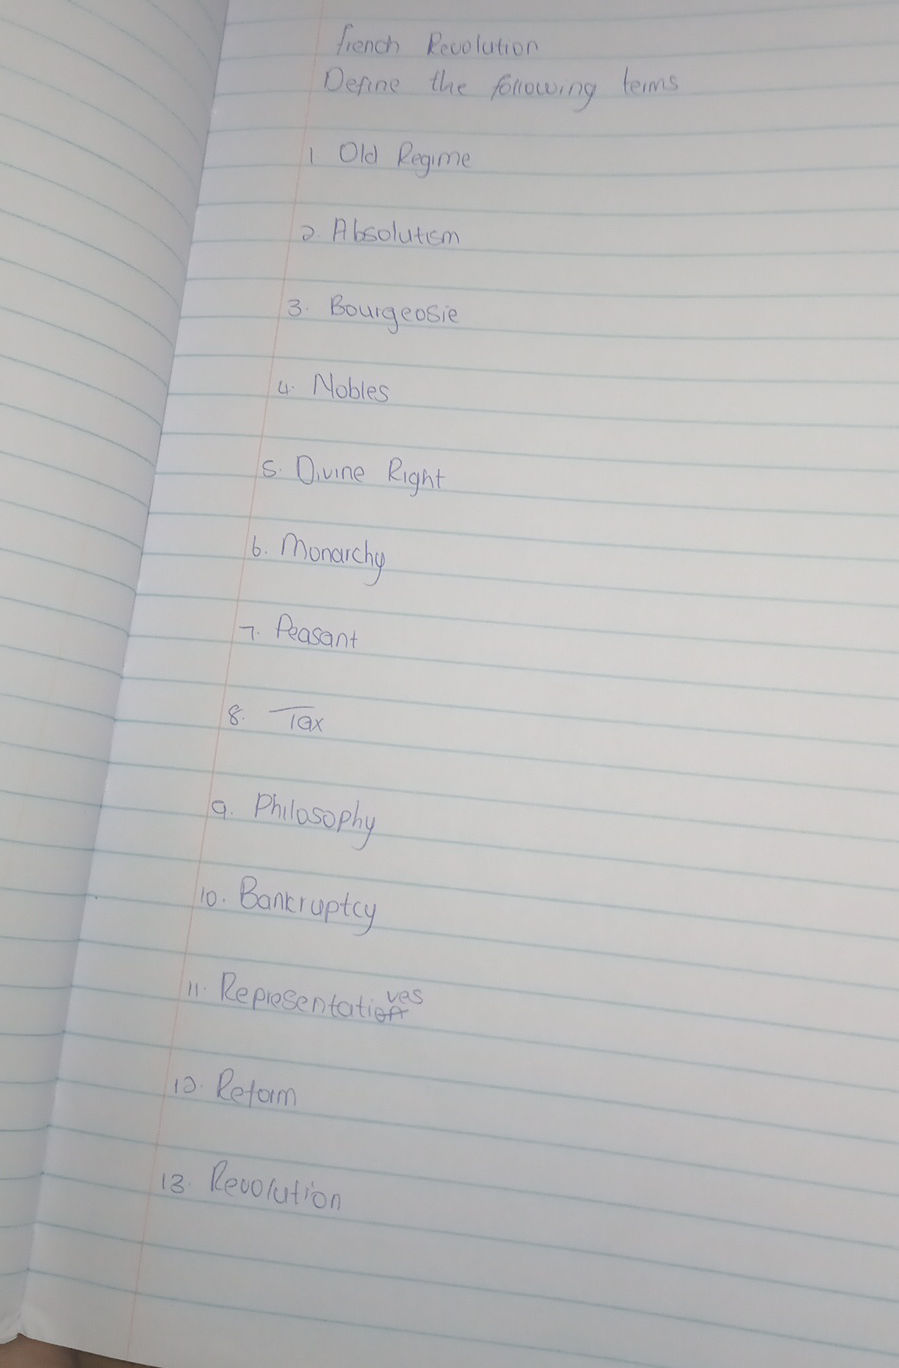 French Revolution
Define the following terms
1 Old Regime
2. Absolutism
3. Bourgeosie
4. Nobles
5. Divine Right
6. Monarchy
7. Peasant
8. Tax
9. Philosophy
10. Bankruptcy
11. Representatives
12. Reform
13. Revolution